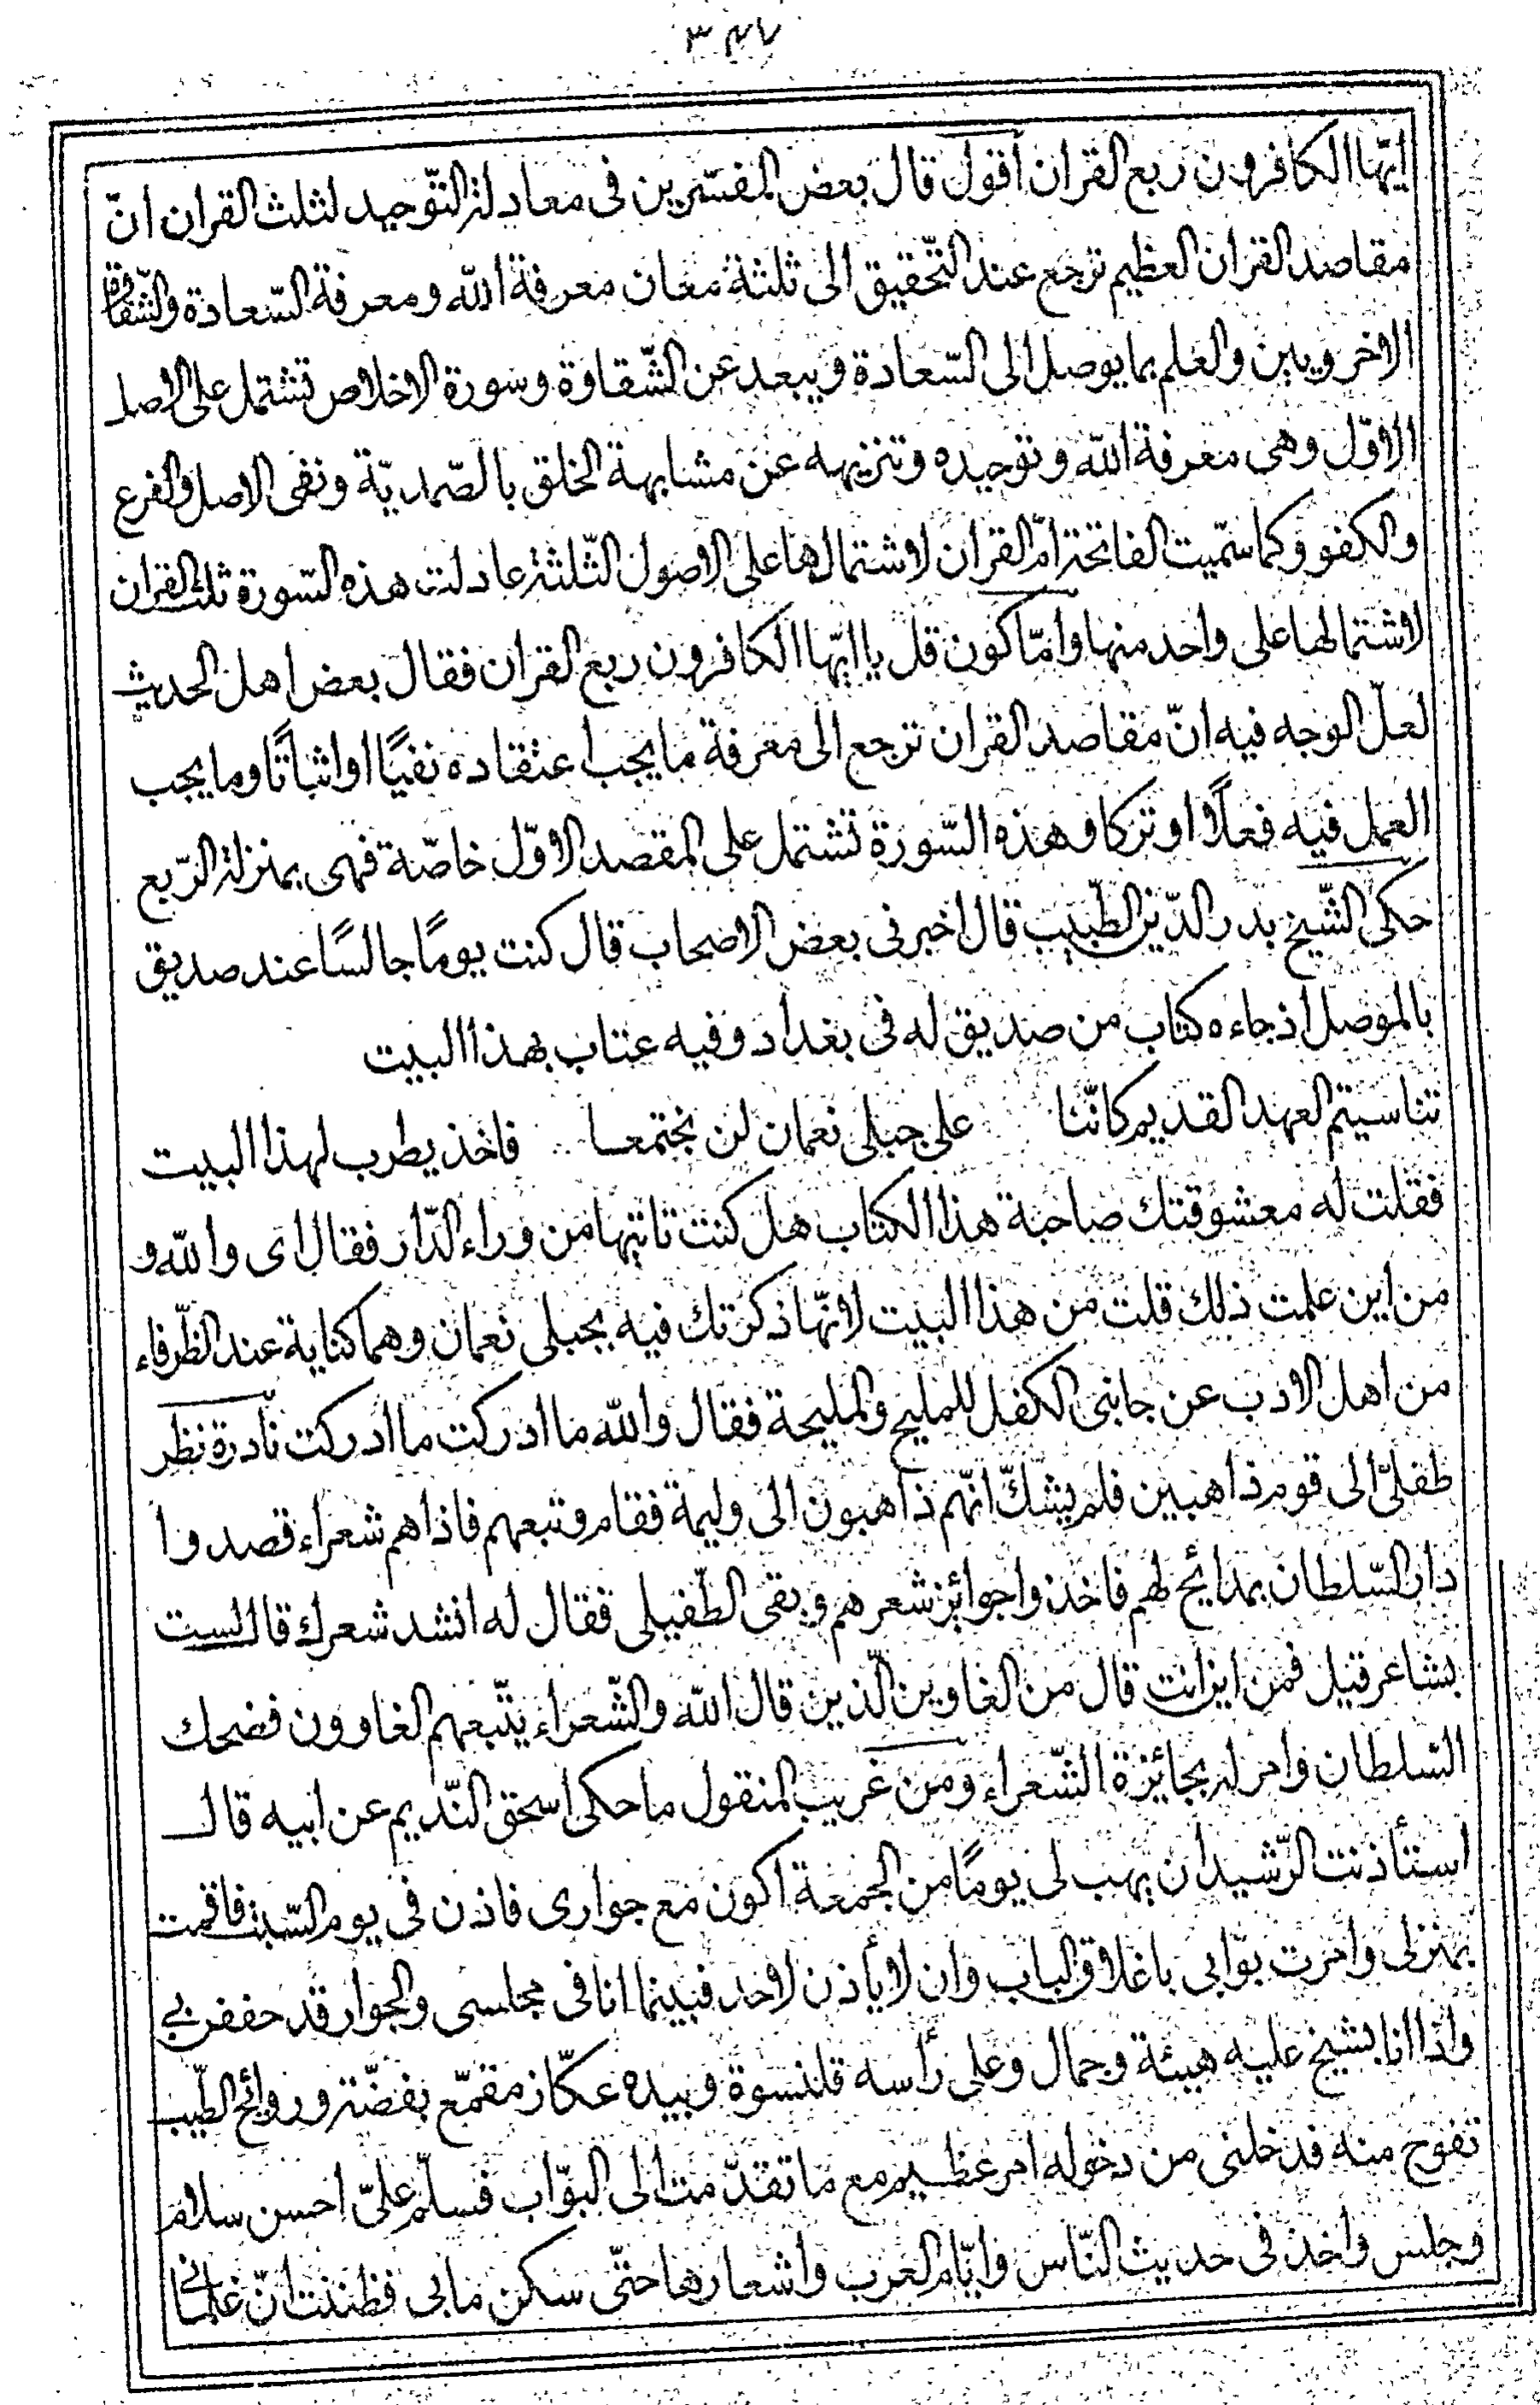 ٣٤٧
ايّها الكافرون ربع القران أقول قال بعض المفسّرين فى معادلة التّوحيد لثلث القران انّ
مقاصد القران العظيم ترجع عند التّحقيق الى ثلثة معان معرفة الله ومعرفة السّعادة والشّقاوة
الاخرويين والعلم بما يوصل الى السّعادة ويبعد عن الشّقاوة وسورة الاخلاص تشتمل على الاصل
الاوّل وهى معرفة الله وتوحيده وتنزيهه عن مشابهة الخلق بالصّمديّة ونفى الاصل والفرع
والكفو وكما سمّيت الفاتحة امّ القران لاشتمالها على الاصول الثّلثة عادلت هذه السّورة ثلث القران
لاشتمالها على واحد منها وامّا كون قل يا ايّها الكافرون ربع القران فقال بعض اهل الحديث
لعلّ الوجه فيه انّ مقاصد القران ترجع الى معرفة ما يجب اعتقاده نفيًا او اثباتًا وما يجب
العمل فيه فعلًا او تركا وهذه السّورة تشتمل على المقصد الاوّل خاصّة فهى بمنزلة الرّبع
حكى الشّيخ بدر الدّين الطّبيب قال اخبرنى بعض الاصحاب قال كنت يومًا جالسًا عند صديق
بالموصل اذ جاءه كتاب من صديق له فى بغداد وفيه عتاب بهذا البيت
تناسيتم العهد القديم كانّنا على جبلى نعمان لن نجتمعا فاخذ يطرب لهذا البيت
فقلت له معشوقتك صاحبة هذا الكتاب هل كنت تاتيها من وراء الدّار فقال اى والله و
من اين علمت ذلك قلت من هذا البيت لانّها ذكرتك فيه بجبلى نعمان وهما كناية عند الظّرفاء
من اهل الادب عن جانبى الكفل للمليح والمليحة فقال والله ما ادركت ما ادركت نادرة نظر
طفلىّ الى قوم ذاهبين فلم يشكّ انّهم ذاهبون الى وليمة فقام وتبعهم فاذا هم شعراء قصدوا
دار السّلطان بمدائح لهم فاخذوا جوائز شعرهم وبقى الطّفيلى فقال له انشد شعرك قال لست
بشاعر قيل فمن اين انت قال من الغاوين الّذين قال الله والشّعراء يتّبعهم الغاوون فضحك
السّلطان وامر له بجائزة الشّعراء ومن غريب المنقول ما حكى اسحق النّديم عن ابيه قال
استأذنت الرّشيد ان يهب لى يومًا من الجمعة اكون مع جوارى فاذن فى يوم السّبت فاقمت
بمنزلى وامرت بوّابى باغلاق الباب وان لا يأذن لاحد فبينما انا فى مجلسى والجوار قد حففن بى
واذا انا بشيخ عليه هيئة وجمال وعلى رأسه قلنسوة وبيده عكّاز مقمّع بفضّة وروائح الطّيب
تفوح منه فدخلنى من دخوله امر عظيم مع ما تقدّمت الى البوّاب فسلّم علىّ احسن سلام
وجلس واخذ فى حديث النّاس وايّام العرب واشعارها حتّى سكن ما بى فظننت انّ غلمانى